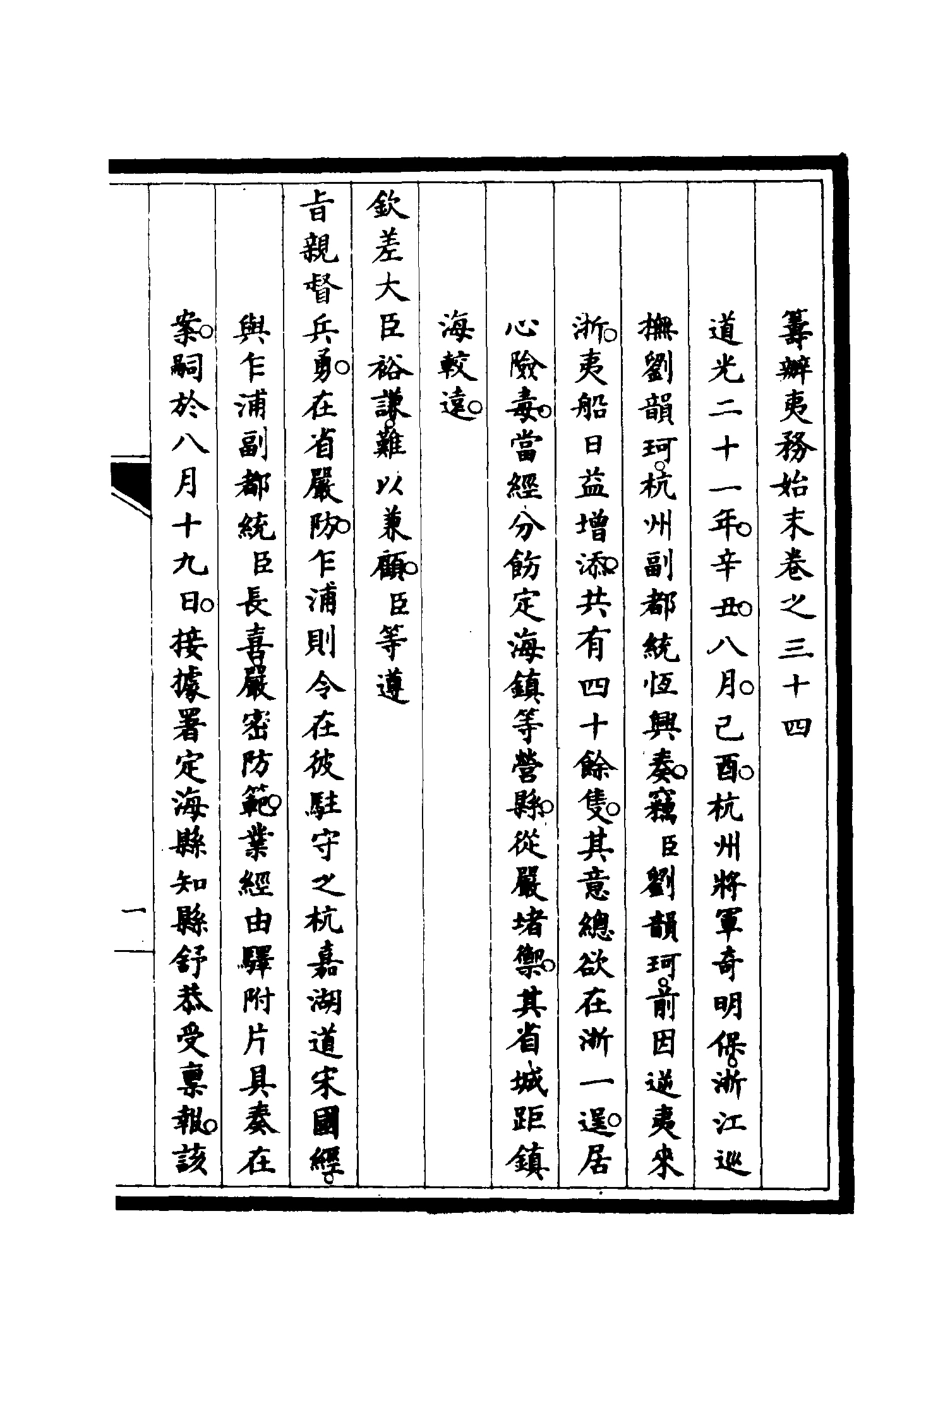 籌辦夷務始末卷之三十四
道光二十一年。辛丑。八月。己酉。杭州將軍奇明保。浙江巡
撫劉韻珂。杭州副都統恆興奏。竊臣劉韻珂。前因逆夷來
浙。夷船日益增添。共有四十餘隻。其意總欲在浙一逞。居
心險毒。當經分飭定海鎮等營縣。從嚴堵禦。其省城距鎮
海較遠。
欽差大臣裕謙。難以兼顧。臣等遵
旨親督兵勇。在省嚴防。乍浦則令在彼駐守之杭嘉湖道宋國經。
與乍浦副都統臣長喜嚴密防範。業經由驛附片具奏在
案。嗣於八月十九日。接據署定海縣知縣舒恭受稟報。該
一